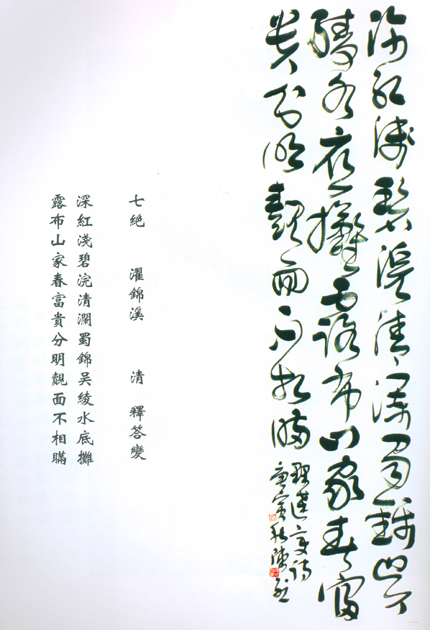 深紅淺碧浣清瀾蜀錦吳
綾水底攤露布山家春富
貴分明覿面不相瞞
庚寅秋
七絕 濯錦溪 清 釋答變
深紅淺碧浣清瀾蜀錦吳綾水底攤
露布山家春富貴分明覿面不相瞞